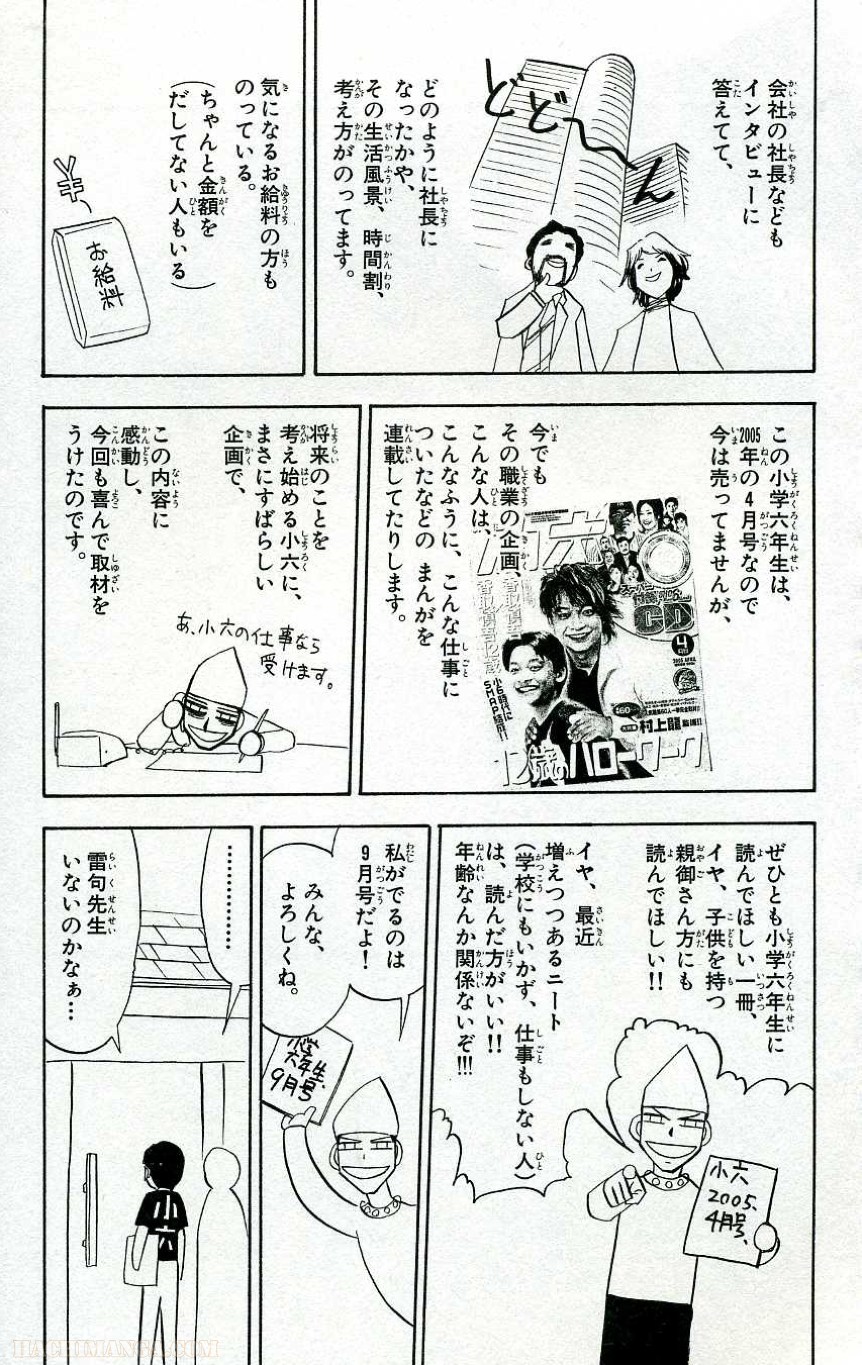 会社の社長なども
インタビューに
答えてて、
どど〜〜ん
どのように社長に
なったかや、
その生活風景、時間割、
考え方がのってます。
気になるお給料の方も
のっている。
(ちゃんと金額を
だしてない人もいる)
¥
お給料
この小学六年生は、
2005年の4月号なので
今は売ってませんが、
CD
4
小6時代に
SMAP結成!
村上龍
12歳のハローワーク
今でも
その職業の企画、
こんな人は、
こんなふうに、こんな仕事に
ついたなどの まんがを
連載してたりします。
将来のことを
考え始める小六に、
まさにすばらしい
企画で、
この内容に
感動し、
今回も喜んで取材を
うけたのです。
あ、小六の仕事なら
受けます。
ぜひとも小学六年生に
読んでほしい一冊、
イヤ、子供を持つ
親御さん方にも
読んでほしい!!
イヤ、最近
増えつつあるニート
(学校にもいかず、仕事もしない人)
は、読んだ方がいい!!
年齢なんか関係ないぞ!!!
小六
2005.
4月号、
私がでるのは
9月号だよ!
みんな、
よろしくね。
小学
六年生、
9月号
…………
雷句先生
いないのかなぁ…
HACHIMANGA.COM